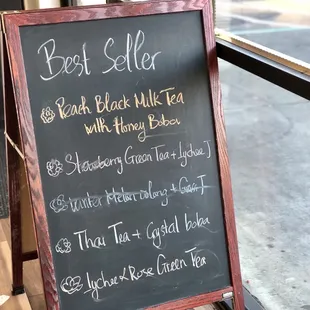 Best Seller
Peach Black Milk Tea
with Honey Boba
Strawberry Green Tea + Lychee J
Winter Melon Oolong + Grass J
Thai Tea + Crystal boba
Lychee & Rose Green Tea